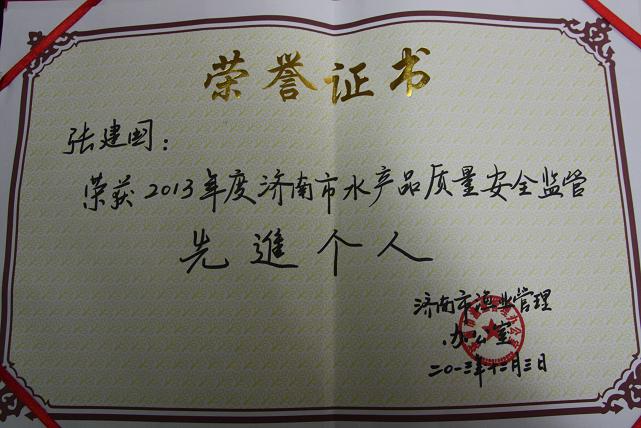 荣誉证书
张建国：
荣获2013年度济南市水产品质量安全监管
先進个人
济南市渔业管理
办公室
二〇一三年十二月三日